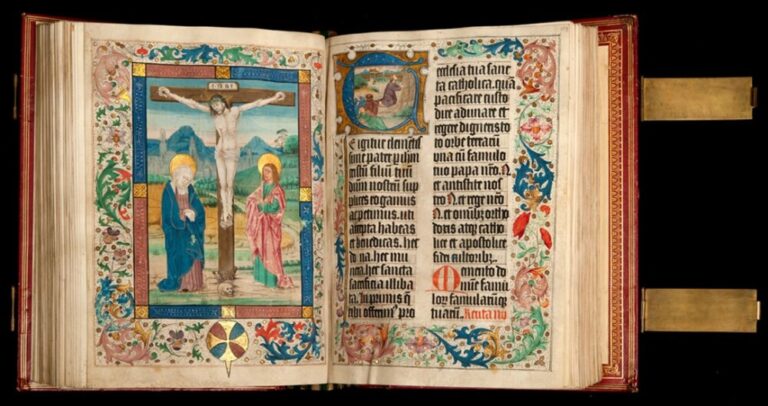 INRI
Te igitur clementis
sime pater
filiū tuū
dūm nostrū sup
plices rogamus
ac petimus. uti
accepta habeas
et benedicas. hec
do na. hec mu
nera. hec sancta
sacrificia illiba
ta. In primis q̄
tibi offerimꝰ pro
ecclesia tua sanc
ta catholica. quā
pacificare custo
dire adunare et
regere digneris to
to orbe terrarū
una cū famulo
tuo papa nr̄o. N.
et antistite nos
tro N. et rege nr̄o
N. et omībꝫ ortho
doxis atqꝫ catho
lice et apostolice
fidei cultoribꝫ.
Memento do
mīe famu
loꝝ famularūqꝫ
tuarū. Recita no